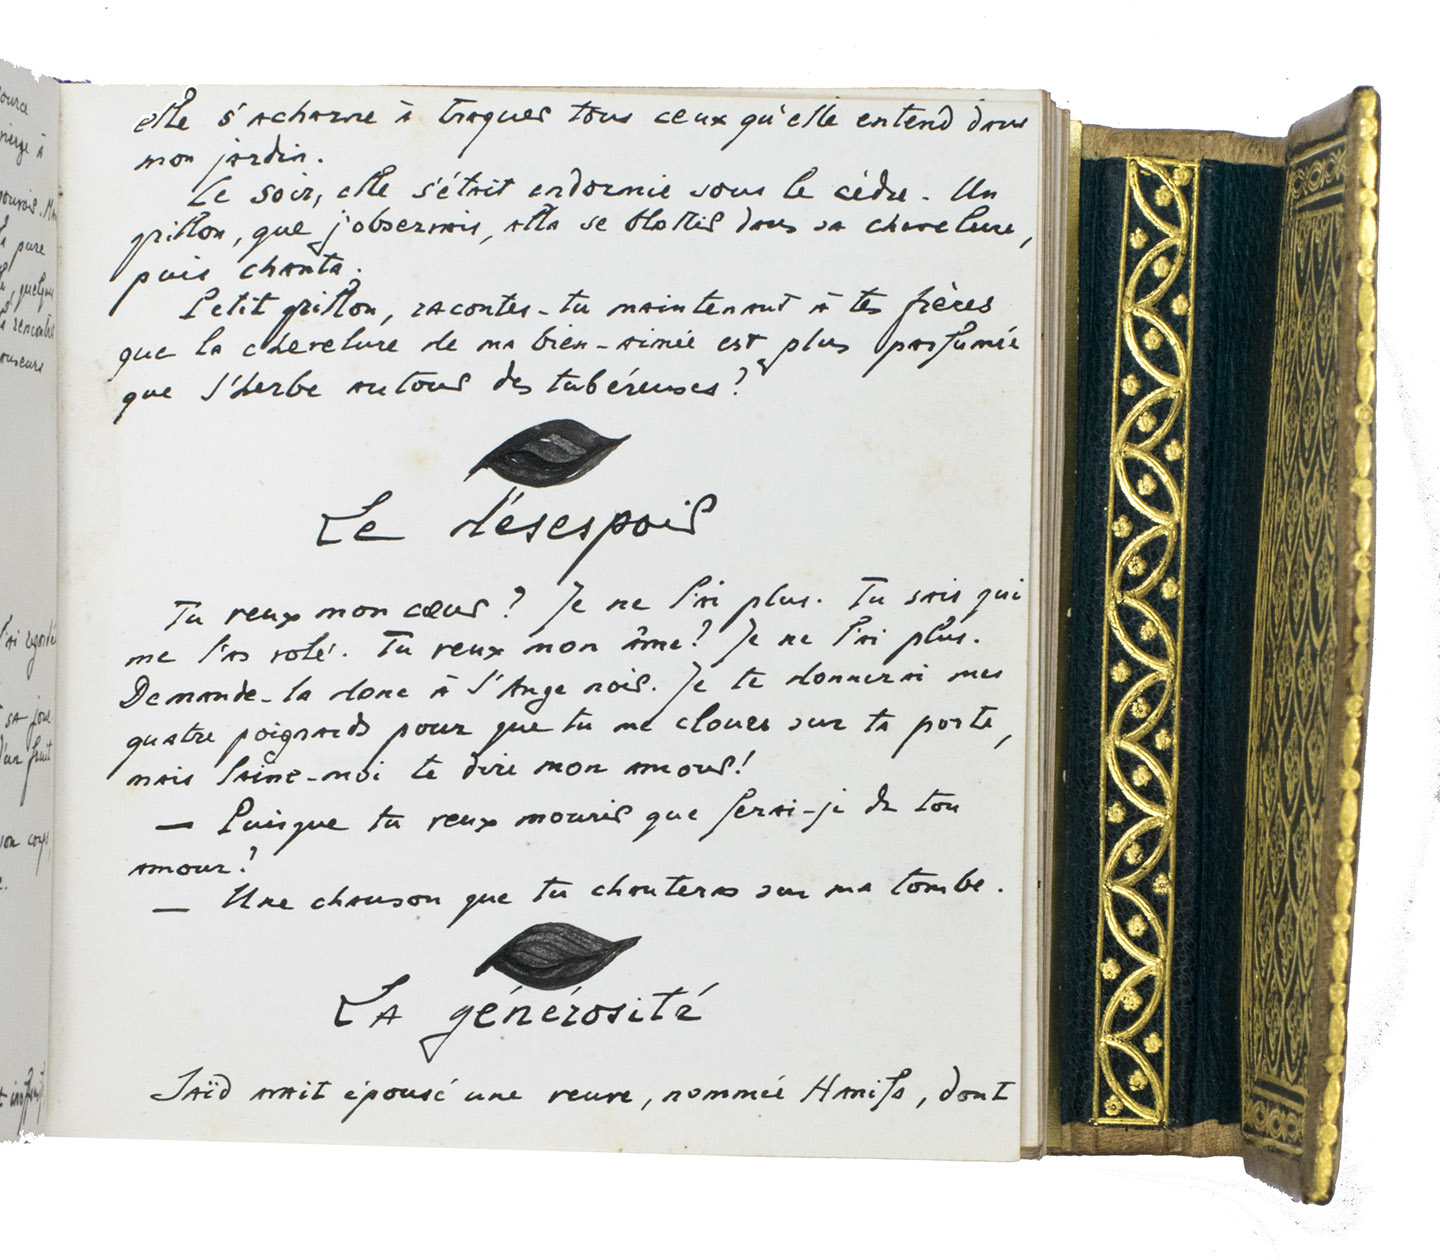 ource
vierge à
pouvais. Mon
pure
, quelques
rencontré
l'ai regardé
sa joue
d'un fruit
mon corps,
elle s'acharne à traquer tous ceux qu'elle entend dans
mon jardin.
Le soir, elle s'était endormie sous le cèdre. Un
grillon, que j'observais, alla se blottir dans sa chevelure,
puis chanta.
Petit grillon, racontes-tu maintenant à tes frères
que la chevelure de ma bien-aimée est plus parfumée
que l'herbe autour des tubéreuses?
Le désespoir
Tu veux mon cœur? Je ne l'ai plus. Tu sais qui
me l'as volé. Tu veux mon âme? Je ne l'ai plus.
Demande-la donc à l'Ange noir. Je te donnerai mes
quatre poignards pour que tu me cloues sur ta porte,
mais laisse-moi te dire mon amour!
— Puisque tu veux mourir que ferai-je de ton
amour?
— Une chanson que tu chanteras sur ma tombe.
La générosité
Saïd avait épousé une veuve, nommée Hanifa, dont